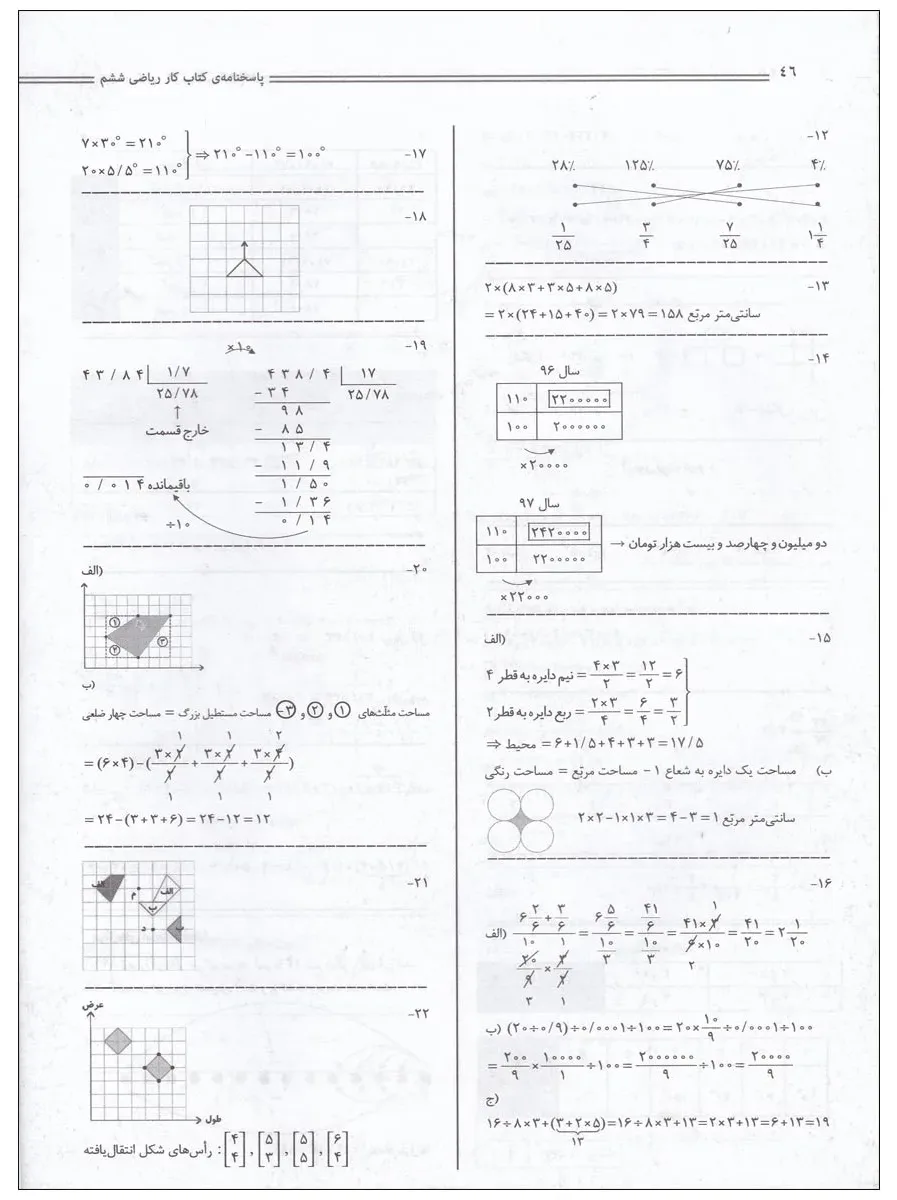 ۴۶
پاسخنامه‌ی کتاب کار ریاضی ششم
۱۲-
۲۸٪ ۱۲۵٪ ۷۵٪ ۴٪
۱/۲۵ ۳/۴ ۷/۲۵ ۱ ۱/۴
۱۳-
۲×(۸×۳+۳×۵+۸×۵)
= ۲×(۲۴+۱۵+۴۰) = ۲×۷۹ = ۱۵۸ سانتی‌متر مربّع
۱۴-
سال ۹۶
۱۱۰ ۲۲۰۰۰۰۰
۱۰۰ ۲۰۰۰۰۰۰
×۲۰۰۰۰
سال ۹۷
۱۱۰ ۲۴۲۰۰۰۰
۱۰۰ ۲۲۰۰۰۰۰
→ دو میلیون و چهارصد و بیست هزار تومان
×۲۲۰۰۰
۱۵-
الف)
نیم دایره به قطر ۴ = ۴×۳/۲ = ۱۲/۲ = ۶
ربع دایره به قطر ۲ = ۲×۳/۴ = ۶/۴ = ۳/۲
⇒ محیط = ۶+۱/۵+۴+۳+۳ = ۱۷/۵
ب) مساحت یک دایره به شعاع ۱ - مساحت مربّع = مساحت رنگی
۲×۲-۱×۱×۳ = ۴-۳ = ۱ سانتی‌متر مربّع
۱۶-
الف) (۶ ۲/۶ + ۳/۶)/(۲۰/۹ × ۳/۲) = (۶ ۵/۶)/(۱۰/۳) = (۴۱/۶)/(۱۰/۳) = ۴۱×۳/۶×۱۰ = ۴۱/۲۰ = ۲ ۱/۲۰
۱۰ ۱
۳ ۱
۱
۲
ب) (۲۰÷۰/۹)÷۰/۰۰۰۱÷۱۰۰ = ۲۰×۱۰/۹÷۰/۰۰۰۱÷۱۰۰
= ۲۰۰/۹ × ۱۰۰۰۰/۱ ÷۱۰۰ = ۲۰۰۰۰۰۰/۹ ÷۱۰۰ = ۲۰۰۰۰/۹
ج)
۱۶÷۸×۳+(۳+۲×۵)=۱۶÷۸×۳+۱۳=۲×۳+۱۳=۶+۱۳=۱۹
۱۳
۱۷-
۷×۳۰° = ۲۱۰°
۲۰×۵/۵° = ۱۱۰°
⇒ ۲۱۰° - ۱۱۰° = ۱۰۰°
۱۸-
۱۹-
×۱۰
۴۳/۸۴ ۱/۷ ۴۳۸/۴ ۱۷
۲۵/۷۸ ۲۵/۷۸
- ۳۴
↑
۹۸
خارج قسمت
- ۸۵
۱۳/۴
- ۱۱/۹
۱/۵۰
۰/۰۱۴ باقیمانده
- ۱/۳۶
۰/۱۴
÷۱۰
۲۰-
الف)
۱
۲
۳
ب)
مساحت مثلّث‌های ۱ و ۲ و ۳ - مساحت مستطیل بزرگ = مساحت چهار ضلعی
۱ ۱ ۲
= (۶×۴)-(۳×۲/۲ + ۳×۲/۲ + ۳×۴/۲)
۱ ۱ ۱
= ۲۴-(۳+۳+۶) = ۲۴-۱۲ = ۱۲
۲۱-
الف
الف
م
ب
ب
د
۲۲-
عرض
طول
رأس‌های شکل انتقال‌یافته : [۴ ۴] , [۵ ۳] , [۵ ۵] , [۶ ۴]